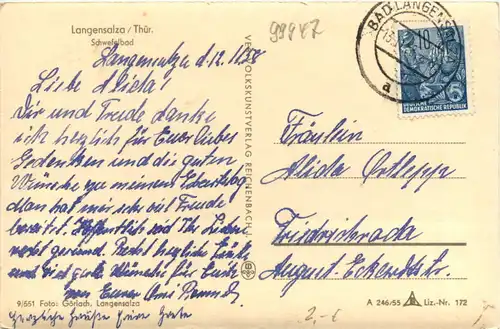 Langensalza / Thür.
Schwefelbad
99947
BAD LANGENS
Langensalza d. 12. 1. 58
Liebe Alida!
Dir und Trude danke
ich herzlich für Euer liebes
Gedenken und die guten
Wünsche zu meinem Geburtstag
Man hat mir viel Freude
bereitet. Hoffentlich seid Ihr Lieben
gesund. Recht herzliche Grüße
und viel gute Wünsche für Euch
von Eurer
Herzliche Grüße
VEB VOLKSKUNSTVERLAG REICHENBACH
DEUTSCHE
DEMOKRATISCHE REPUBLIK
5
Fräulein
Alida Ortlepp
Friedrichroda
August-Eckardtstr.
9/651 Foto: Görlach, Langensalza
A 246/55 Liz.-Nr. 172
2,-